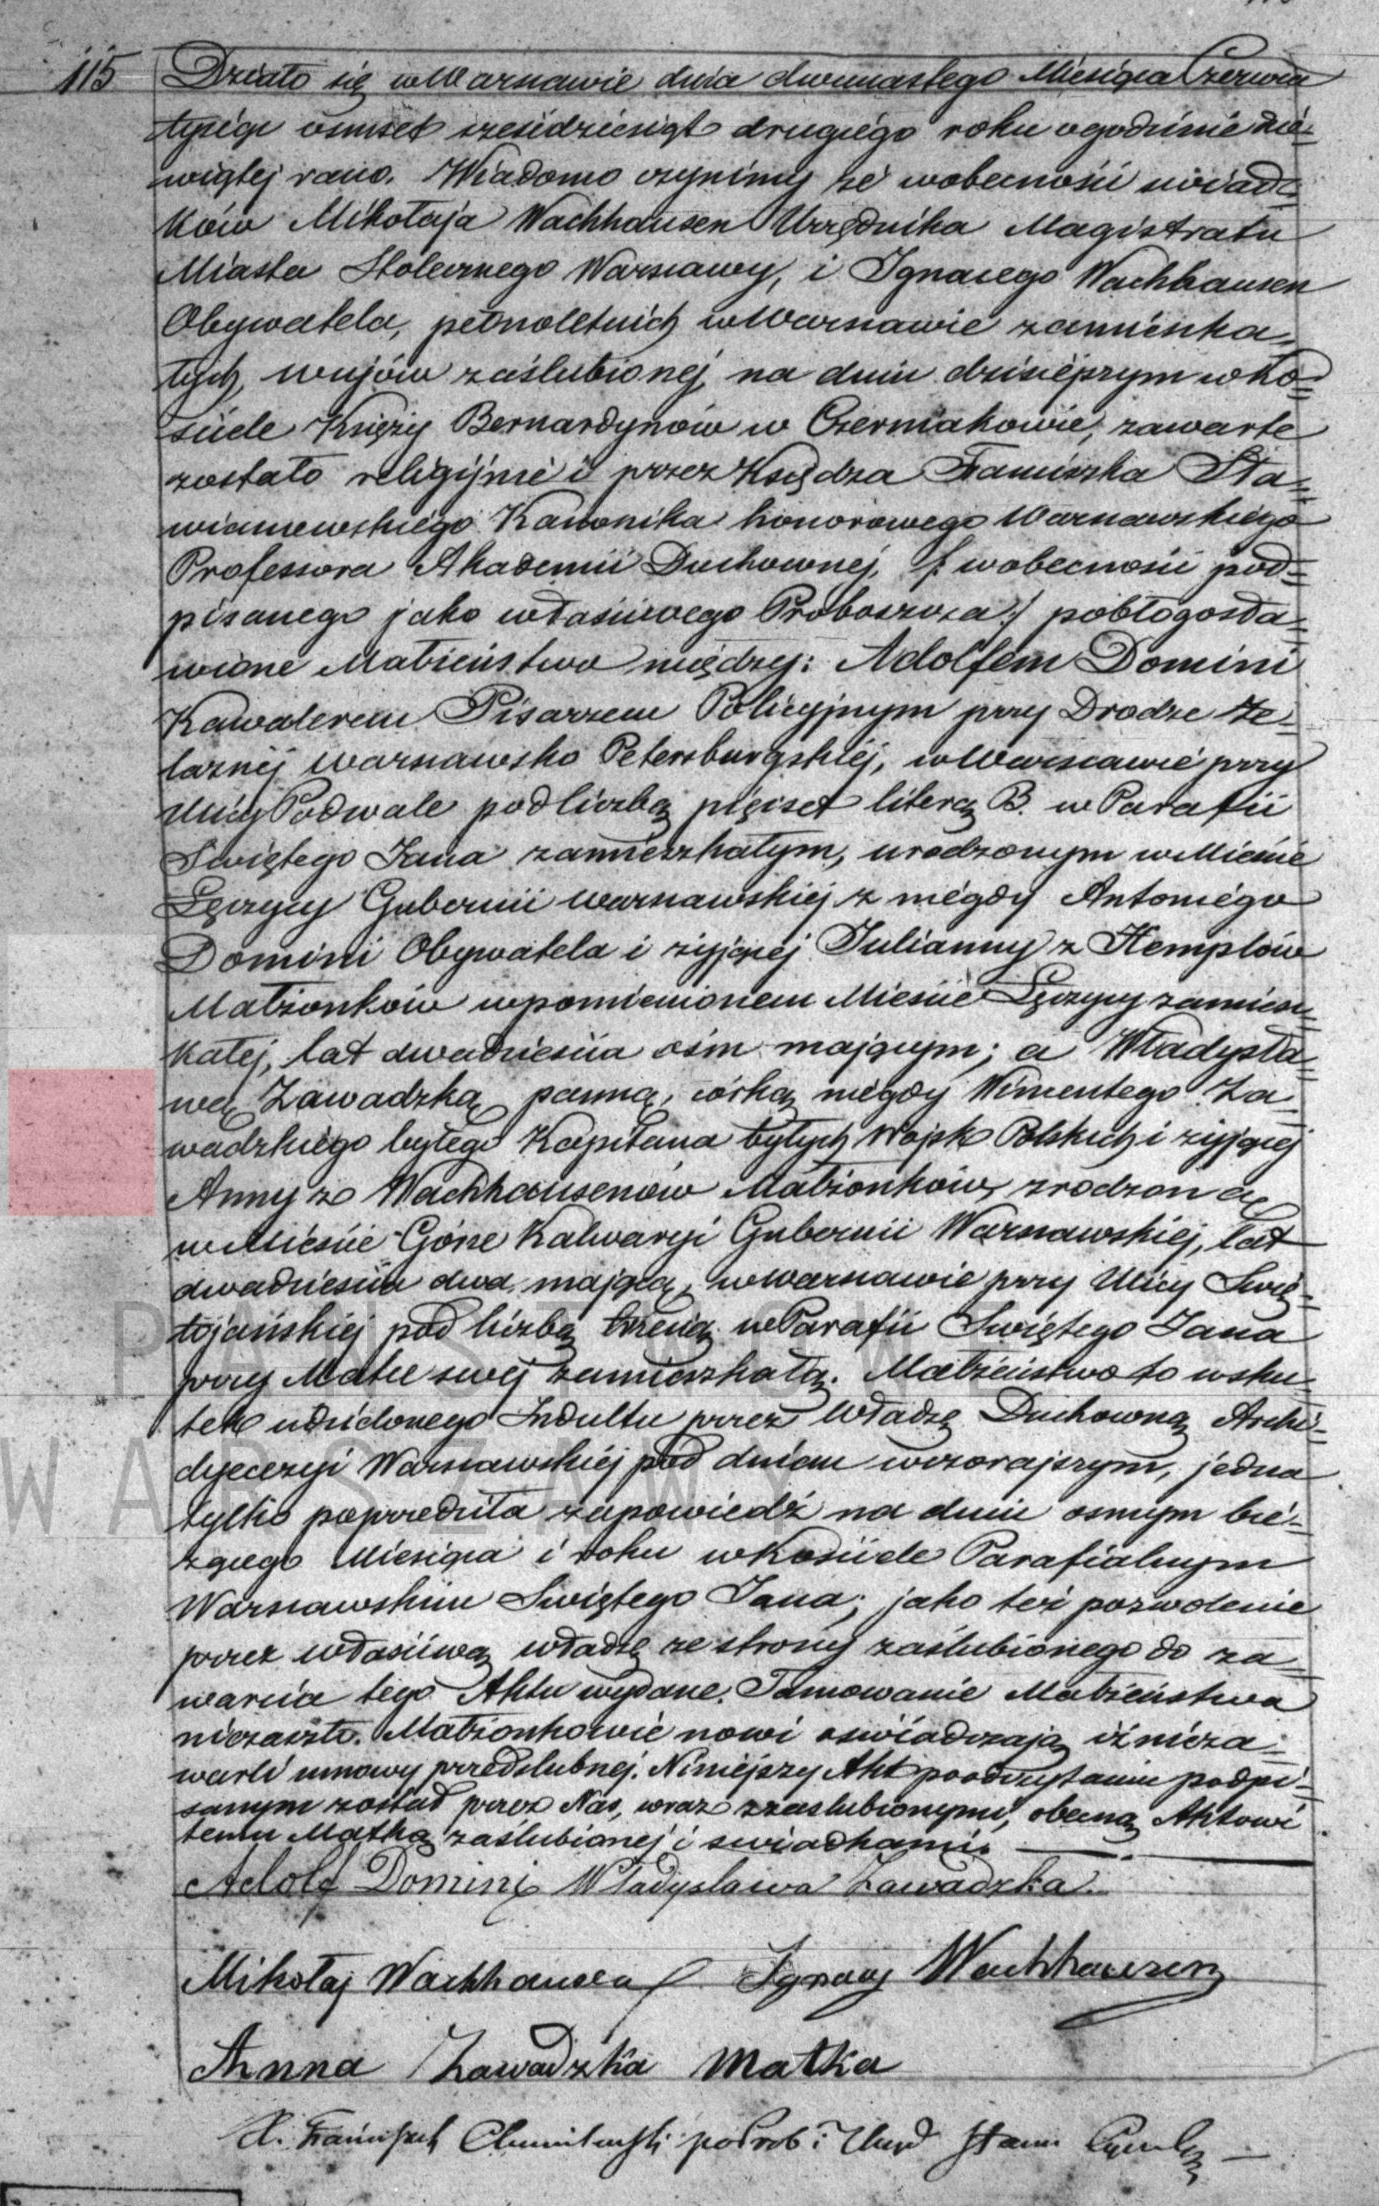 115 Działo się w Warszawie dnia dwunastego Miesiąca Czerwca
tysiąc ośmset sześćdziesiąt drugiego roku o godzinie dzie-
wiątej rano. Wiadomo czynimy że w obecności świad-
ków Mikołaja Wachhausen Urzędnika Magistratu
Miasta Stołecznego Warszawy, i Ignacego Wachhausen
Obywatela, pełnoletnich w Warszawie zamieszka-
łych, wujów zaślubionej, na dniu dzisiejszym w Ko-
ściele Księży Bernardynów w Czerniakowie, zawarte
zostało religijnie i przez Księdza Franciszka Sta-
wianowskiego Kanonika honorowego Warszawskiego
Professora Akademii Duchownej, /: w obecności pod-
pisanego jako właściwego Proboszcza :/ pobłogosła-
wione Małżeństwo między: Adolfem Domini
Kawalerem Pisarzem Policyjnym przy Drodze Że-
laznéj Warszawsko Petersburgskiéj, w Warszawie przy
Ulicy Podwale pod liczbą pięćset literą B. w Parafii
Świętego Jana zamieszkałym, urodzonym w Mieście
Łęczycy Gubernii Warszawskiej z niegdy Antoniego
Domini Obywatela i żyjącej Julianny z Hemplów
Małżonków w pomienionem Mieście Łęczycy zamiesz-
kałej, lat dwadzieścia ośm mającym; a Władysła-
wą Zawadzką panną, córką niegdy Wincentego Za-
wadzkiego byłego Kapitana byłych Wojsk Polskich i żyjącej
Anny z Wachhausenów Małżonków, zrodzoną
w Mieście Górze Kalwaryi Gubernii Warszawskiéj, lat
dwadzieścia dwa mającą, w Warszawie przy Ulicy Świę-
tojańskiej pod liczbą trzecią w Parafii Świętego Jana
przy Matce swej zamieszkałą. Małżeństwo to wsku-
tek udzielonego Indultu przez Władzę Duchowną Archi-
dyecezyi Warszawskiéj pod dniem wczorajszym, jedna
tylko poprzedziła zapowiedź na dniu osmym bie-
żącego Miesiąca i roku w Kościele Parafialnym
Warszawskim Świętego Jana; jako też pozwolenie
przez właściwą władzę ze strony zaślubionego do za-
warcia tego Aktu wydane. Tamowanie Małżeństwa
nie zaszło. Małżonkowie nowi oświadczają iż nie za-
warli umowy przedślubnej. Niniejszy Akt po odczytaniu podpi-
sanym został przez Nas, wraz z zaślubionymi, obecną Aktowi
temu Matką zaślubionej i swiadkami.
Adolf Domini Władysława Zawadzka.
Mikołaj Wachhausen Ignacy Wachhausen
Anna Zawadzka Matka
X. Franciszek
PAŃSTWOWE
WARSZAWY